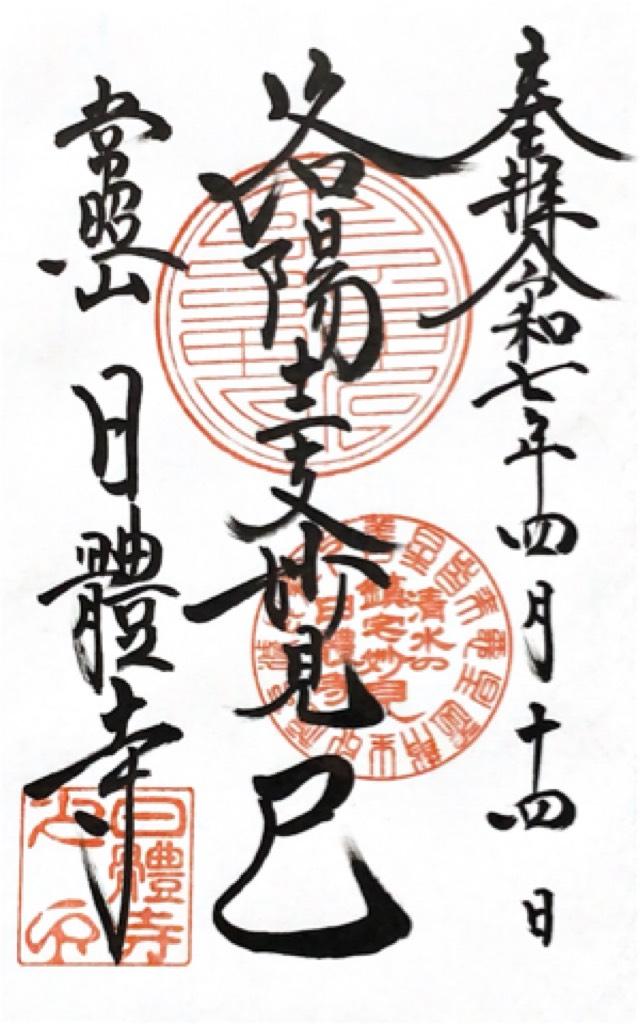 奉拝 令和七年四月十四日
洛陽十二支妙見 巳
常照山 日體寺
清水の
鎮宅妙見
日體寺
日體寺
之印